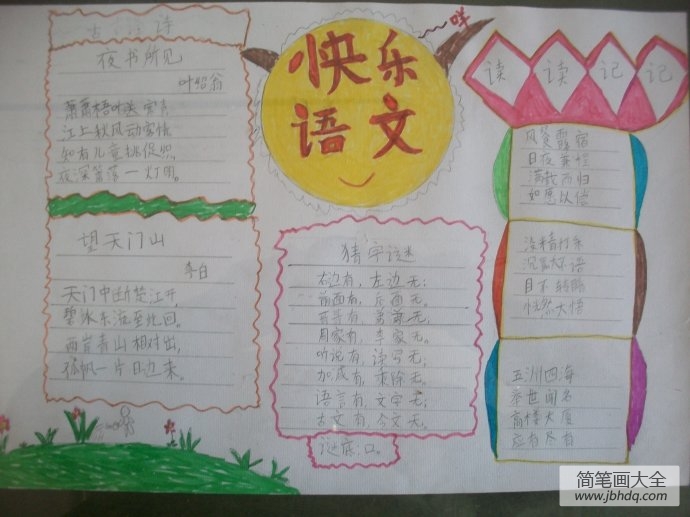 古 诗
夜书所见
叶绍翁
萧萧梧叶送寒声
江上秋风动客情
知有儿童挑促织
夜深篱落一灯明。
望天门山
李白
天门中断楚江开,
碧水东流至北回。
两岸青山相对出,
孤帆一片日边来。
咩
快乐
语文
猜字谜
右边有,左边无;
后面有,前面无。
哥哥有,弟弟无;
周家有,李家无。
听说有,读写无;
加减有,乘除无。
语言有,文字无;
古文有,今文无。
谜底:口。
读 读 记 记
风餐露宿
日夜兼程
满载而归
如愿以偿
没精打采
沉默不语
目不转睛
恍然大悟
五洲四海
举世闻名
高楼大厦
应有尽有
简笔画大全
www.jbhdq.com